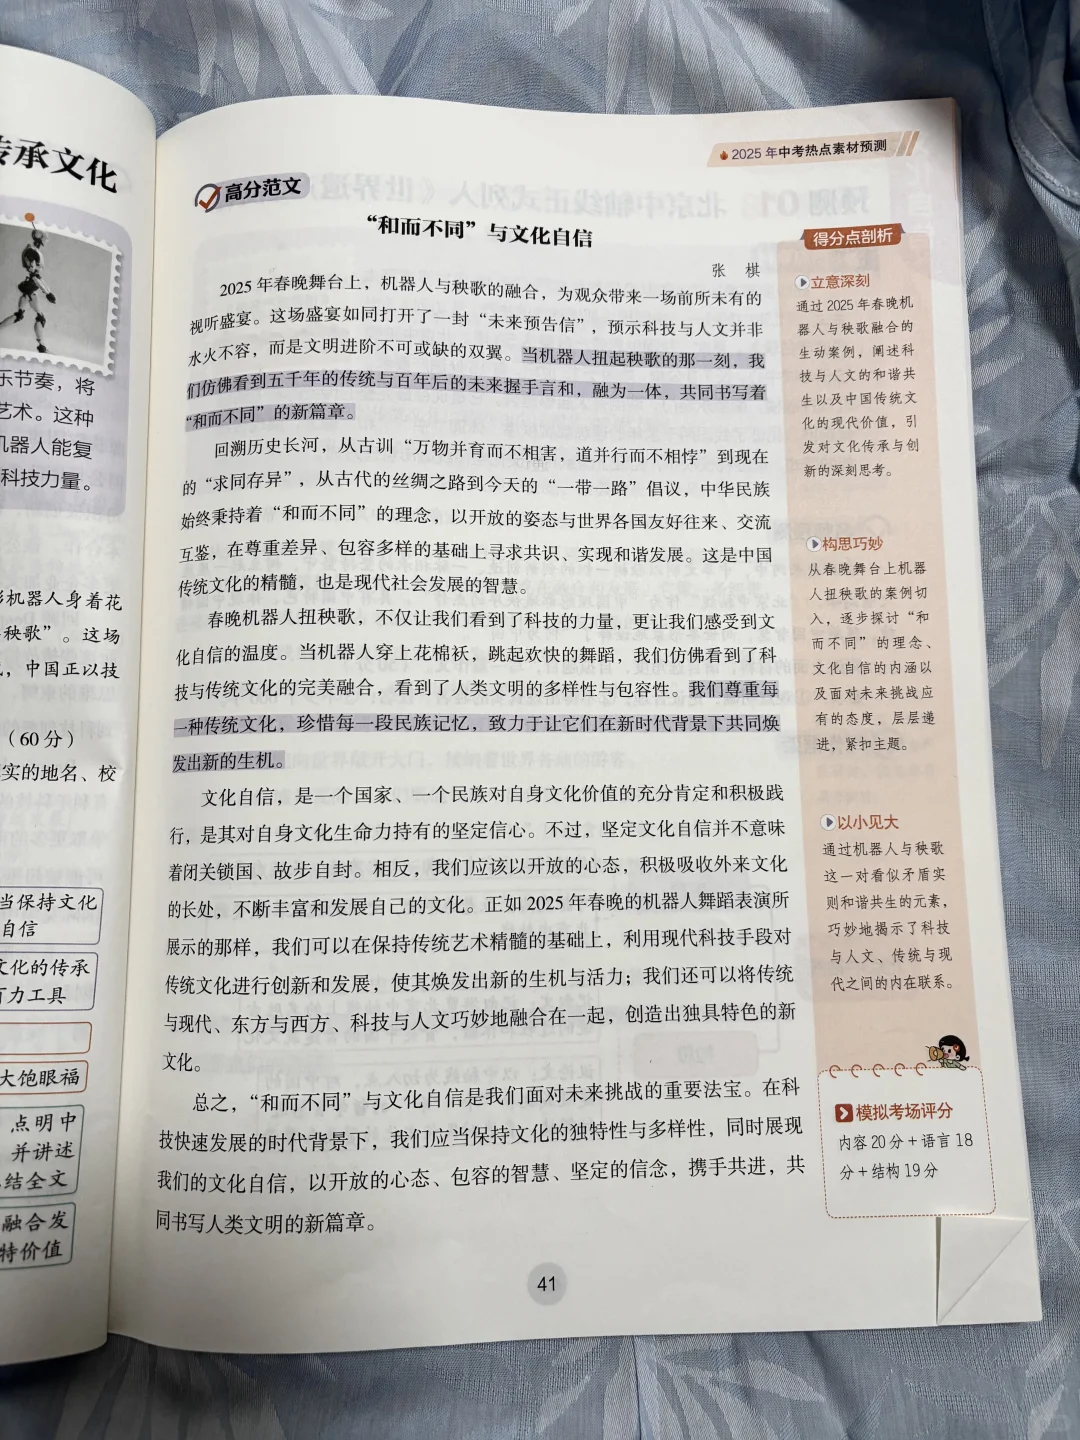 传承文化
乐节奏，将
艺术。这种
机器人能复
科技力量。
彡机器人身着花
秧歌”。这场
，中国正以技
（60分）
实的地名、校
当保持文化
自信
文化的传承
有力工具
大饱眼福
点明中
并讲述
结全文
融合发
特价值
2025年中考热点素材预测
高分范文
“和而不同”与文化自信
张 棋
2025年春晚舞台上，机器人与秧歌的融合，为观众带来一场前所未有的
视听盛宴。这场盛宴如同打开了一封“未来预告信”，预示科技与人文并非
水火不容，而是文明进阶不可或缺的双翼。当机器人扭起秧歌的那一刻，我
们仿佛看到五千年的传统与百年后的未来握手言和，融为一体，共同书写着
“和而不同”的新篇章。
回溯历史长河，从古训“万物并育而不相害，道并行而不相悖”到现在
的“求同存异”，从古代的丝绸之路到今天的“一带一路”倡议，中华民族
始终秉持着“和而不同”的理念，以开放的姿态与世界各国友好往来、交流
互鉴，在尊重差异、包容多样的基础上寻求共识、实现和谐发展。这是中国
传统文化的精髓，也是现代社会发展的智慧。
春晚机器人扭秧歌，不仅让我们看到了科技的力量，更让我们感受到文
化自信的温度。当机器人穿上花棉袄，跳起欢快的舞蹈，我们仿佛看到了科
技与传统文化的完美融合，看到了人类文明的多样性与包容性。我们尊重每
一种传统文化，珍惜每一段民族记忆，致力于让它们在新时代背景下共同焕
发出新的生机。
文化自信，是一个国家、一个民族对自身文化价值的充分肯定和积极践
行，是其对自身文化生命力持有的坚定信心。不过，坚定文化自信并不意味
着闭关锁国、故步自封。相反，我们应该以开放的心态，积极吸收外来文化
的长处，不断丰富和发展自己的文化。正如2025年春晚的机器人舞蹈表演所
展示的那样，我们可以在保持传统艺术精髓的基础上，利用现代科技手段对
传统文化进行创新和发展，使其焕发出新的生机与活力；我们还可以将传统
与现代、东方与西方、科技与人文巧妙地融合在一起，创造出独具特色的新
文化。
总之，“和而不同”与文化自信是我们面对未来挑战的重要法宝。在科
技快速发展的时代背景下，我们应当保持文化的独特性与多样性，同时展现
我们的文化自信，以开放的心态、包容的智慧、坚定的信念，携手共进，共
同书写人类文明的新篇章。
得分点剖析
立意深刻
通过2025年春晚机
器人与秧歌融合的
生动案例，阐述科
技与人文的和谐共
生以及中国传统文
化的现代价值，引
发对文化传承与创
新的深刻思考。
构思巧妙
从春晚舞台上机器
人扭秧歌的案例切
入，逐步探讨“和
而不同”的理念、
文化自信的内涵以
及面对未来挑战应
有的态度，层层递
进，紧扣主题。
以小见大
通过机器人与秧歌
这一对看似矛盾实
则和谐共生的元素，
巧妙地揭示了科技
与人文、传统与现
代之间的内在联系。
模拟考场评分
内容20分+语言18
分+结构19分
41